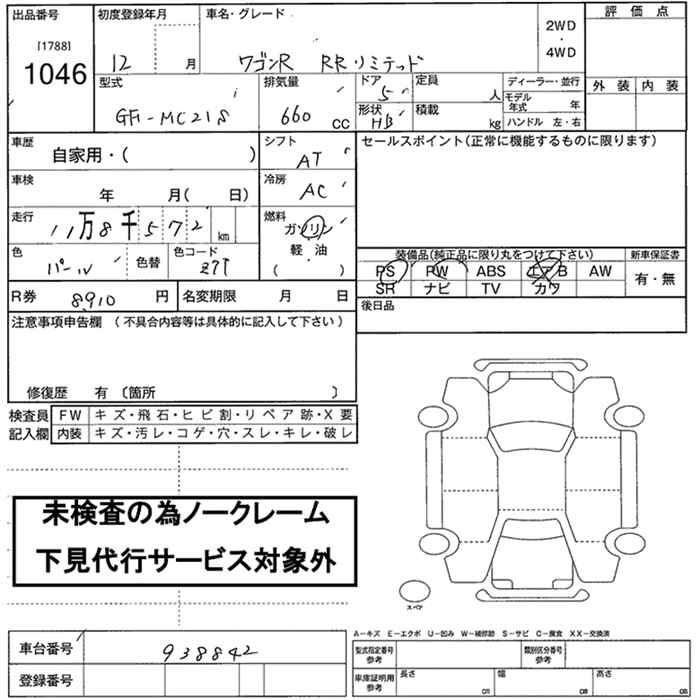 出品番号 初度登録年月 車名・グレード 評価点
[1788]
1046
12 月 ワゴンR RRリミテッド
2WD
・
4WD
外装 内装
型式 排気量 ドア 定員 ディーラー・並行
GF-MC21S 660 CC 5 人
モデル年式 年
形状 積載 HB kg ハンドル 左・右
車歴 自家用・( ) シフト AT セールスポイント(正常に機能するものに限ります)
車検 年 月( 日) 冷房 AC
走行 11万8千572 km 燃料 ガソリン
軽・油
( )
色 パール 色替 色コード Z7T
装備品(純正品に限り丸をつけて下さい) 新車保証書
PS PW ABS エアB AW 有・無
SR ナビ TV カワ
R券 8910 円 名変期限 月 日 後日品
注意事項申告欄 (不具合内容等は具体的に記入して下さい)
修復歴 有 〔箇所 〕
検査員 FW キズ・飛石・ヒビ割・リペア跡・X要
記入欄 内装 キズ・汚レ・コゲ・穴・スレ・キレ・破レ
未検査の為ノークレーム
下見代行サービス対象外
スペア
A-キズ E-エクボ U-凹み W-補修跡 S-サビ C-腐食 XX-交換済
車台番号 938842
型式指定番号 参考 類別区分番号 参考
登録番号
車庫証明用 参考 長さ cm 幅 cm 高さ cm